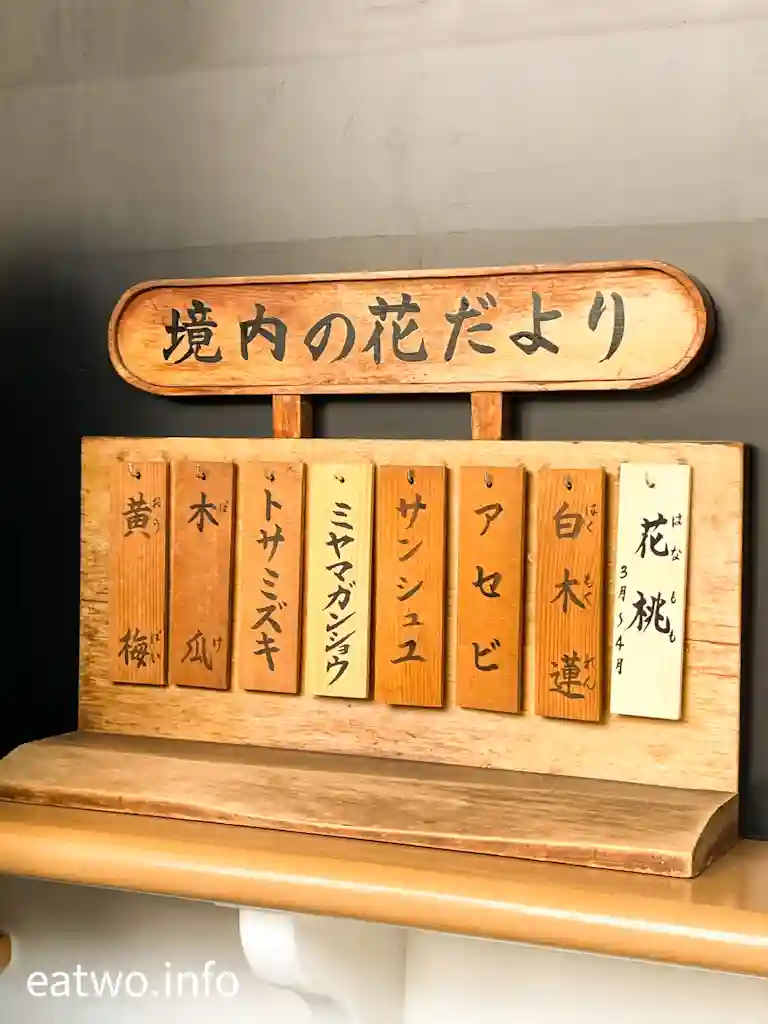 境内の花だより
花桃
はなもも
3月～4月
白木蓮
はくもくれん
アセビ
サンシュユ
ミヤマガンショウ
トサミズキ
木瓜
ぼけ
黄梅
おうばい
eatwo.info